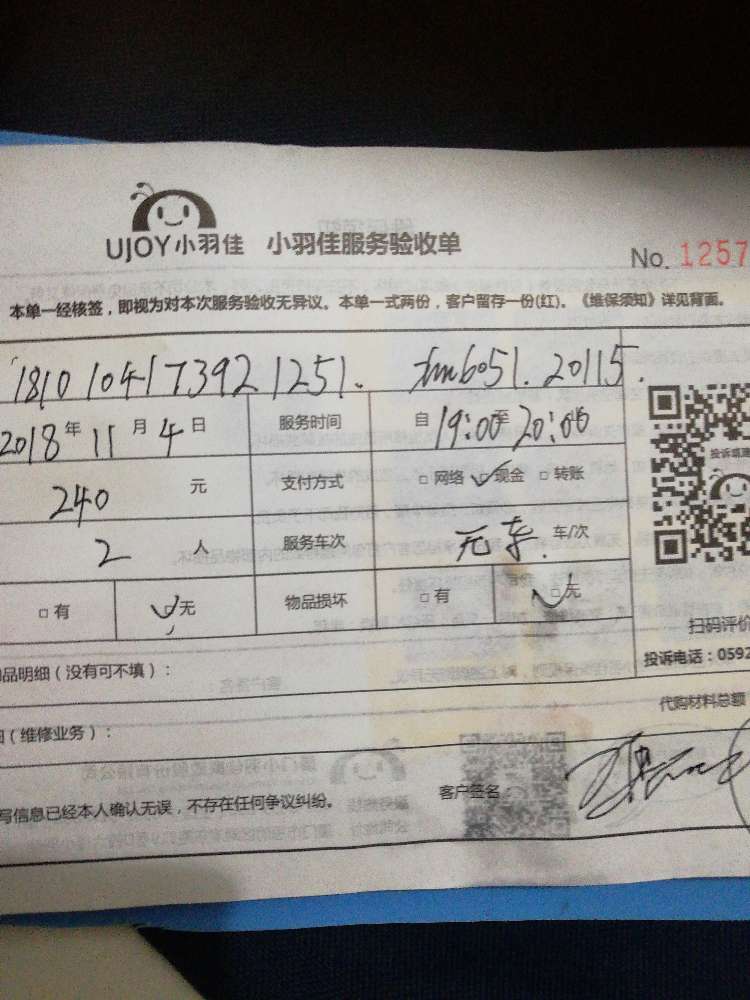 UJOY小羽佳 小羽佳服务验收单
No. 1257
本单一经核签，即视为对本次服务验收无异议。本单一式两份，客户留存一份(红)。《维保须知》详见背面。
1810104173921251. 20115.
2018年11月4日 服务时间 自19:00至20:00
投诉
240元 支付方式 □网络 ☑现金 □转账
2人 服务车次 无车 车/次
□有 ☑无 物品损坏 □有 ☑无
扫码评价
品明细（没有可不填）：
投诉电话：0592
代购材料总额
（维修业务）：
写信息已经本人确认无误，不存在任何争议纠纷。 客户签名：